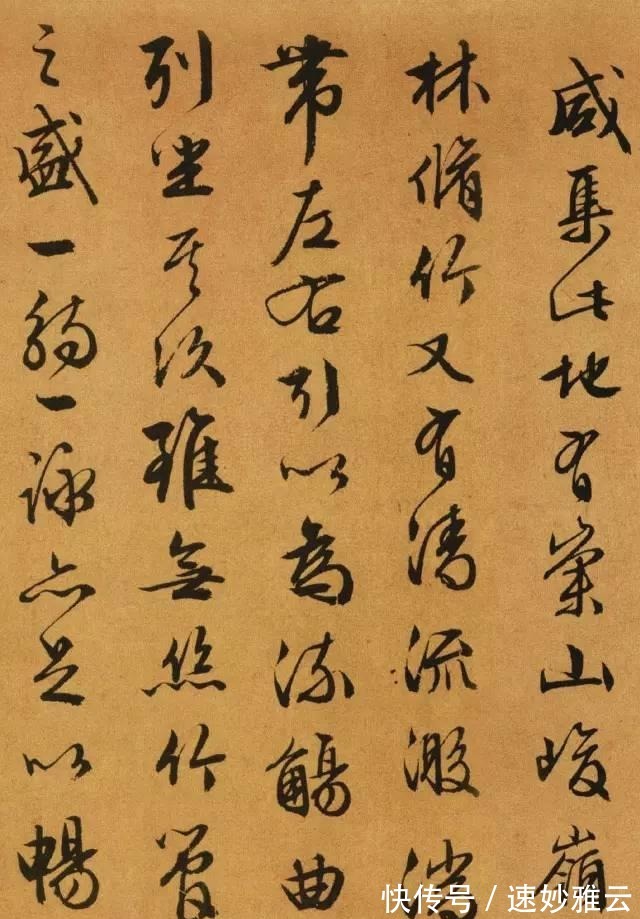 咸集此地有崇山峻嶺
林脩竹又有清流激湍
帶左右引以為流觴曲
列坐其次雖無絲竹管
之盛一觴一詠亦足以暢
快传号 / 速妙雅云